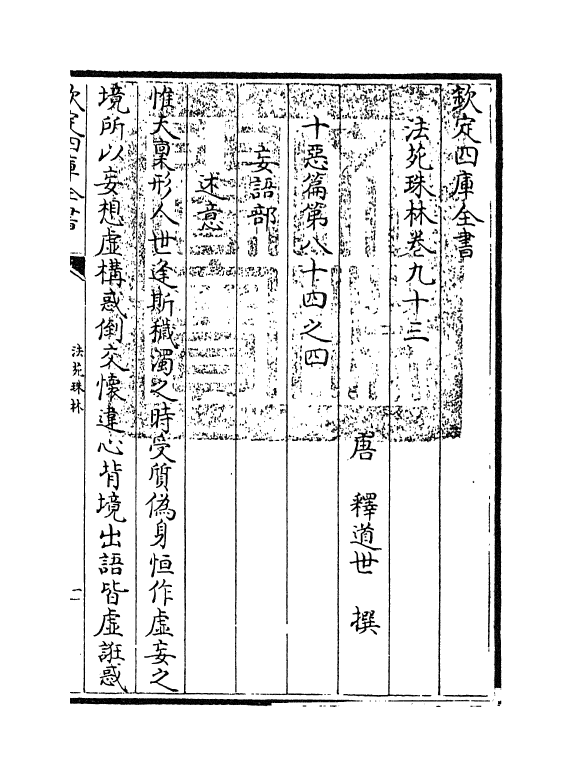 欽定四庫全書
法苑珠林卷九十三
唐　釋道世　撰
十惡篇第八十四之四
妄語部
述意
惟夫稟形人世逢斯穢濁之時受質偽身恒作虛妄之
境所以妄想虛構惑倒交懷違心背境出語皆虛誑惑
欽定四庫全書
法苑珠林
一